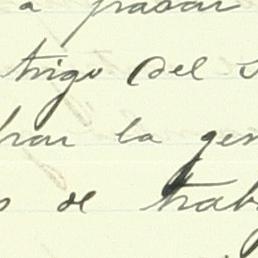 a pasar
trigo del s
har la gen
s de trab